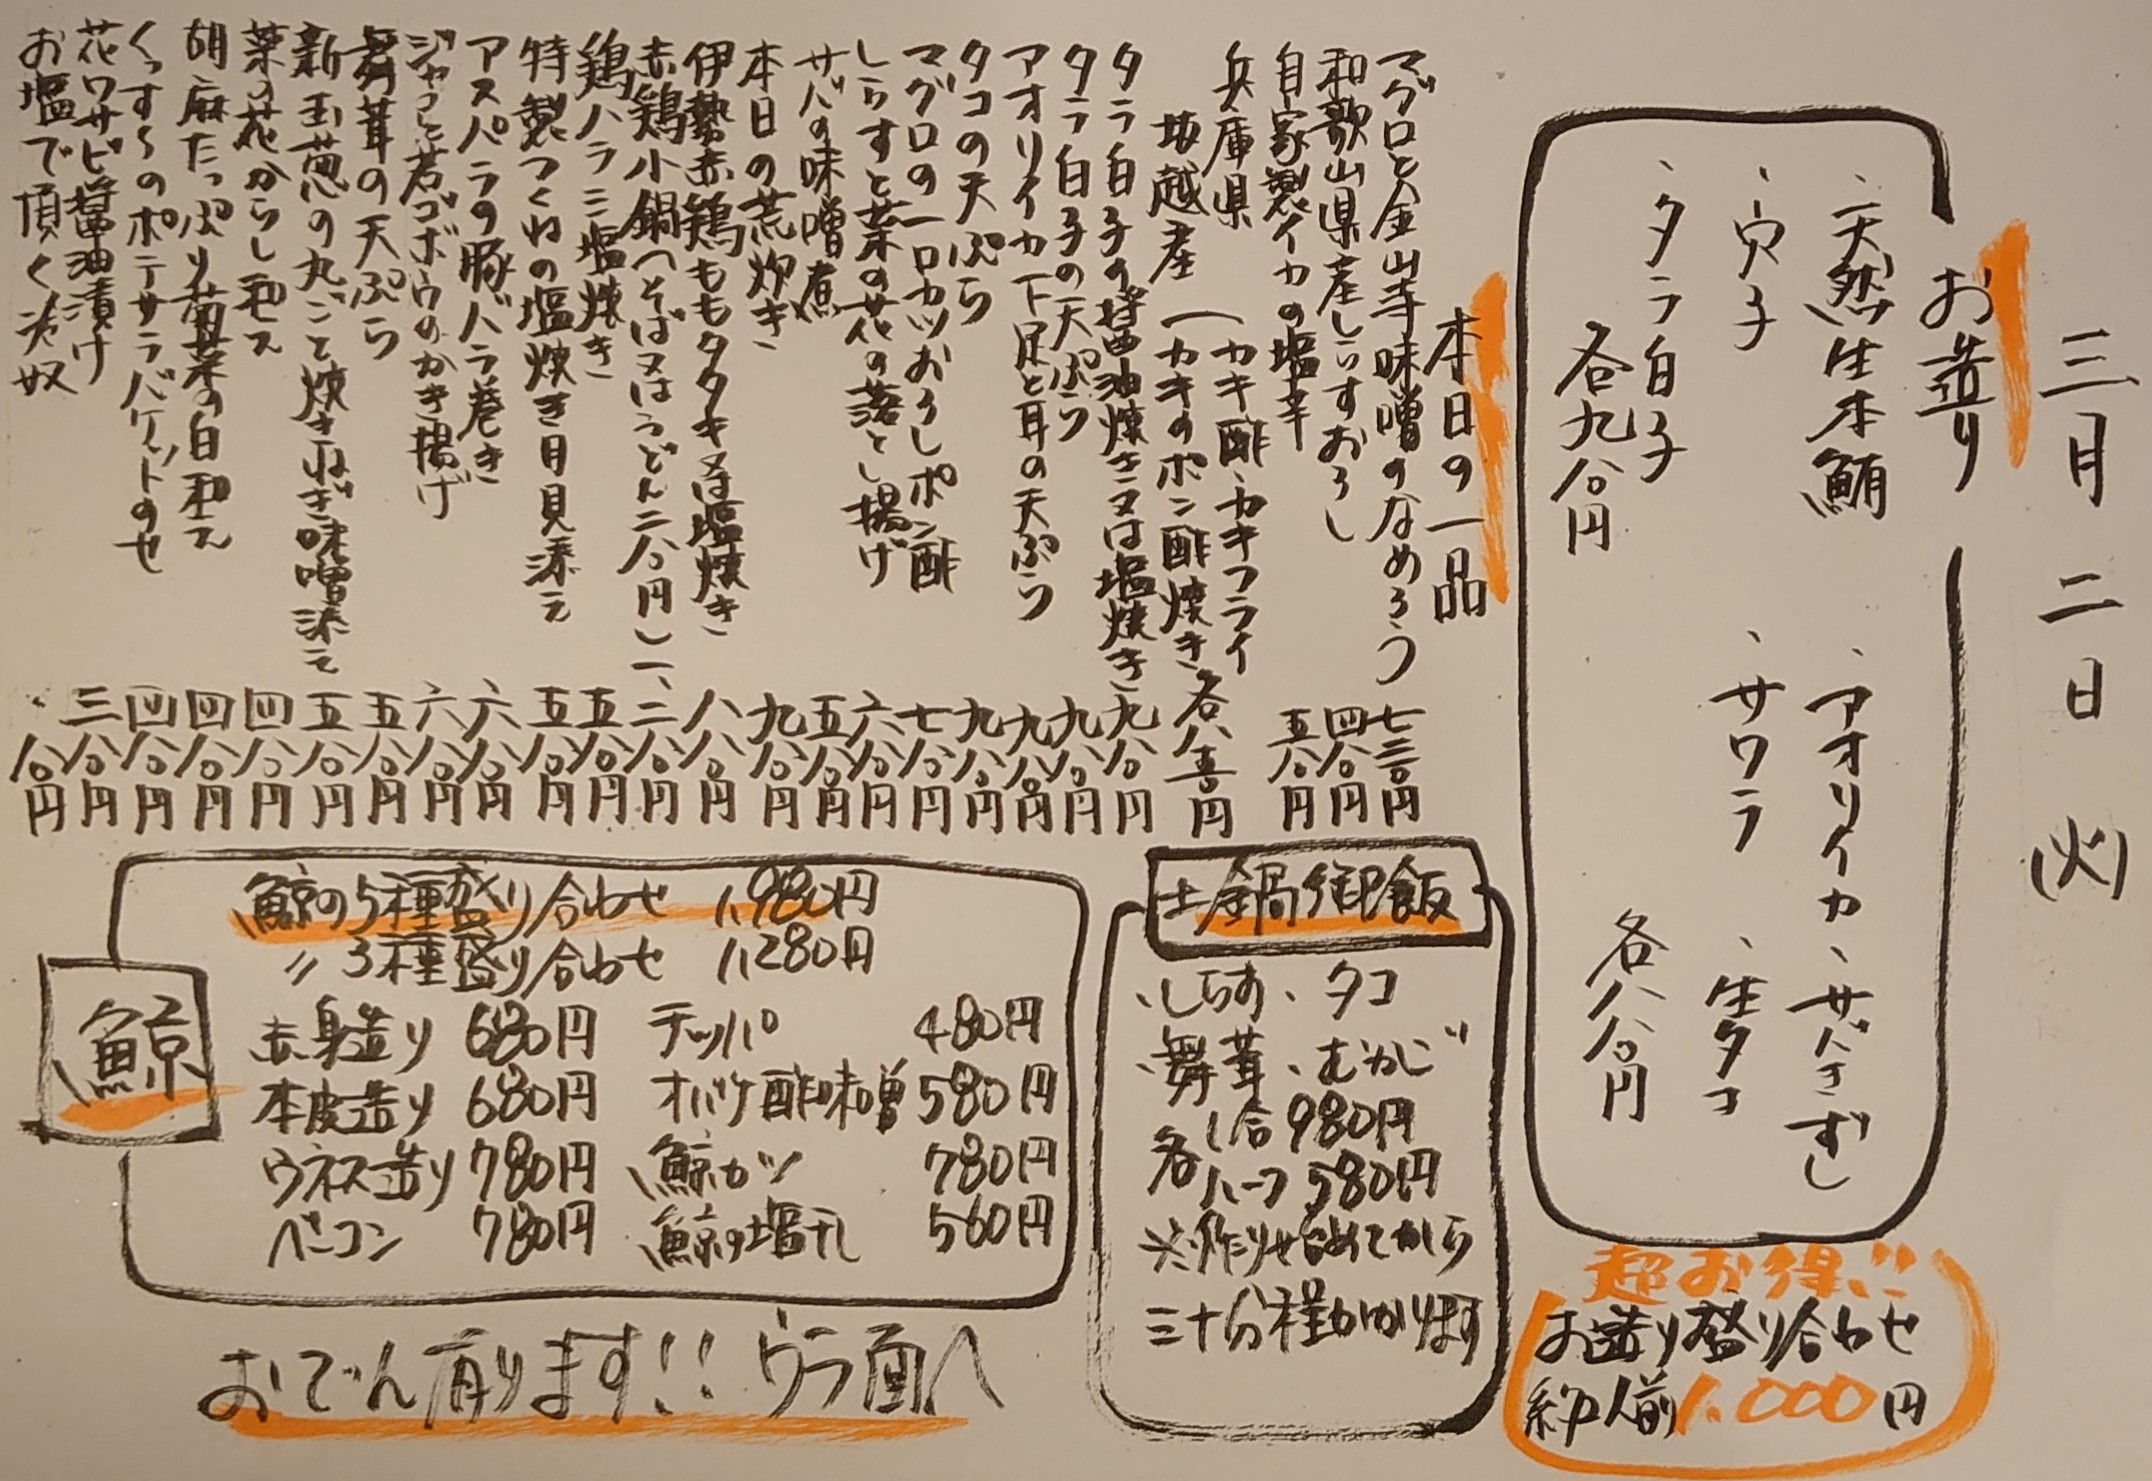 三月二日(火)
お造り
、天然生本鮪
、アオリイカ、サバきずし
、穴子
、サワラ
、生タコ
、タラ白子
各九八〇円
各八八〇円
超お得!!
お造り盛り合わせ
約一人前1.000円
本日の一品
マグロと金山寺味噌のなめろう 七三〇円
和歌山県産しらすおろし 四八〇円
自家製イカの塩辛 五八〇円
兵庫県 坂越産
(カキ酢、カキフライ
(カキのポン酢焼き 各八五〇円
タラ白子の醤油焼き又は塩焼き 九八〇円
タラ白子の天ぷら 九八〇円
アオリイカ下足と耳の天ぷら 九八〇円
タコの天ぷら 九八〇円
マグロの一口カツおろしポン酢 七八〇円
しらすと菜の花の落とし揚げ 六八〇円
サバの味噌煮 五八〇円
本日の荒炊き 九八〇円
伊勢赤鶏ももタタキ又は塩焼き 八八〇円
赤鶏小鍋(そば又はうどん二八〇円) 一、二八〇円
鶏ハラミ塩焼き 五八〇円
特製つくねの塩焼き月見添え 五八〇円
アスパラの豚バラ巻き 六八〇円
ジャコと若ゴボウのかき揚げ 六八〇円
舞茸の天ぷら 五八〇円
新玉葱の丸ごと焼きねぎ味噌添え 五八〇円
菜の花からし和え 四八〇円
胡麻たっぷり菊菜の白和え 四八〇円
くっすくのポテサラバケットのせ 四八〇円
花ワサビ醤油漬け 三八〇円
お塩で頂く冷奴 八〇円
土鍋御飯
、しらす、タコ
、舞茸、むかご
各 1合 980円
ハーフ 580円
※作り始めてから
三十分程かかります
鯨
鯨の5種盛り合わせ 1,980円
〃3種盛り合わせ 1,280円
赤身造り 680円 テッパ 480円
本皮造り 680円 オバケ酢味噌 580円
ウネス造り 780円 鯨カツ 780円
ベーコン 780円 鯨の塩干し 560円
おでん有ります!!ウラ面へ